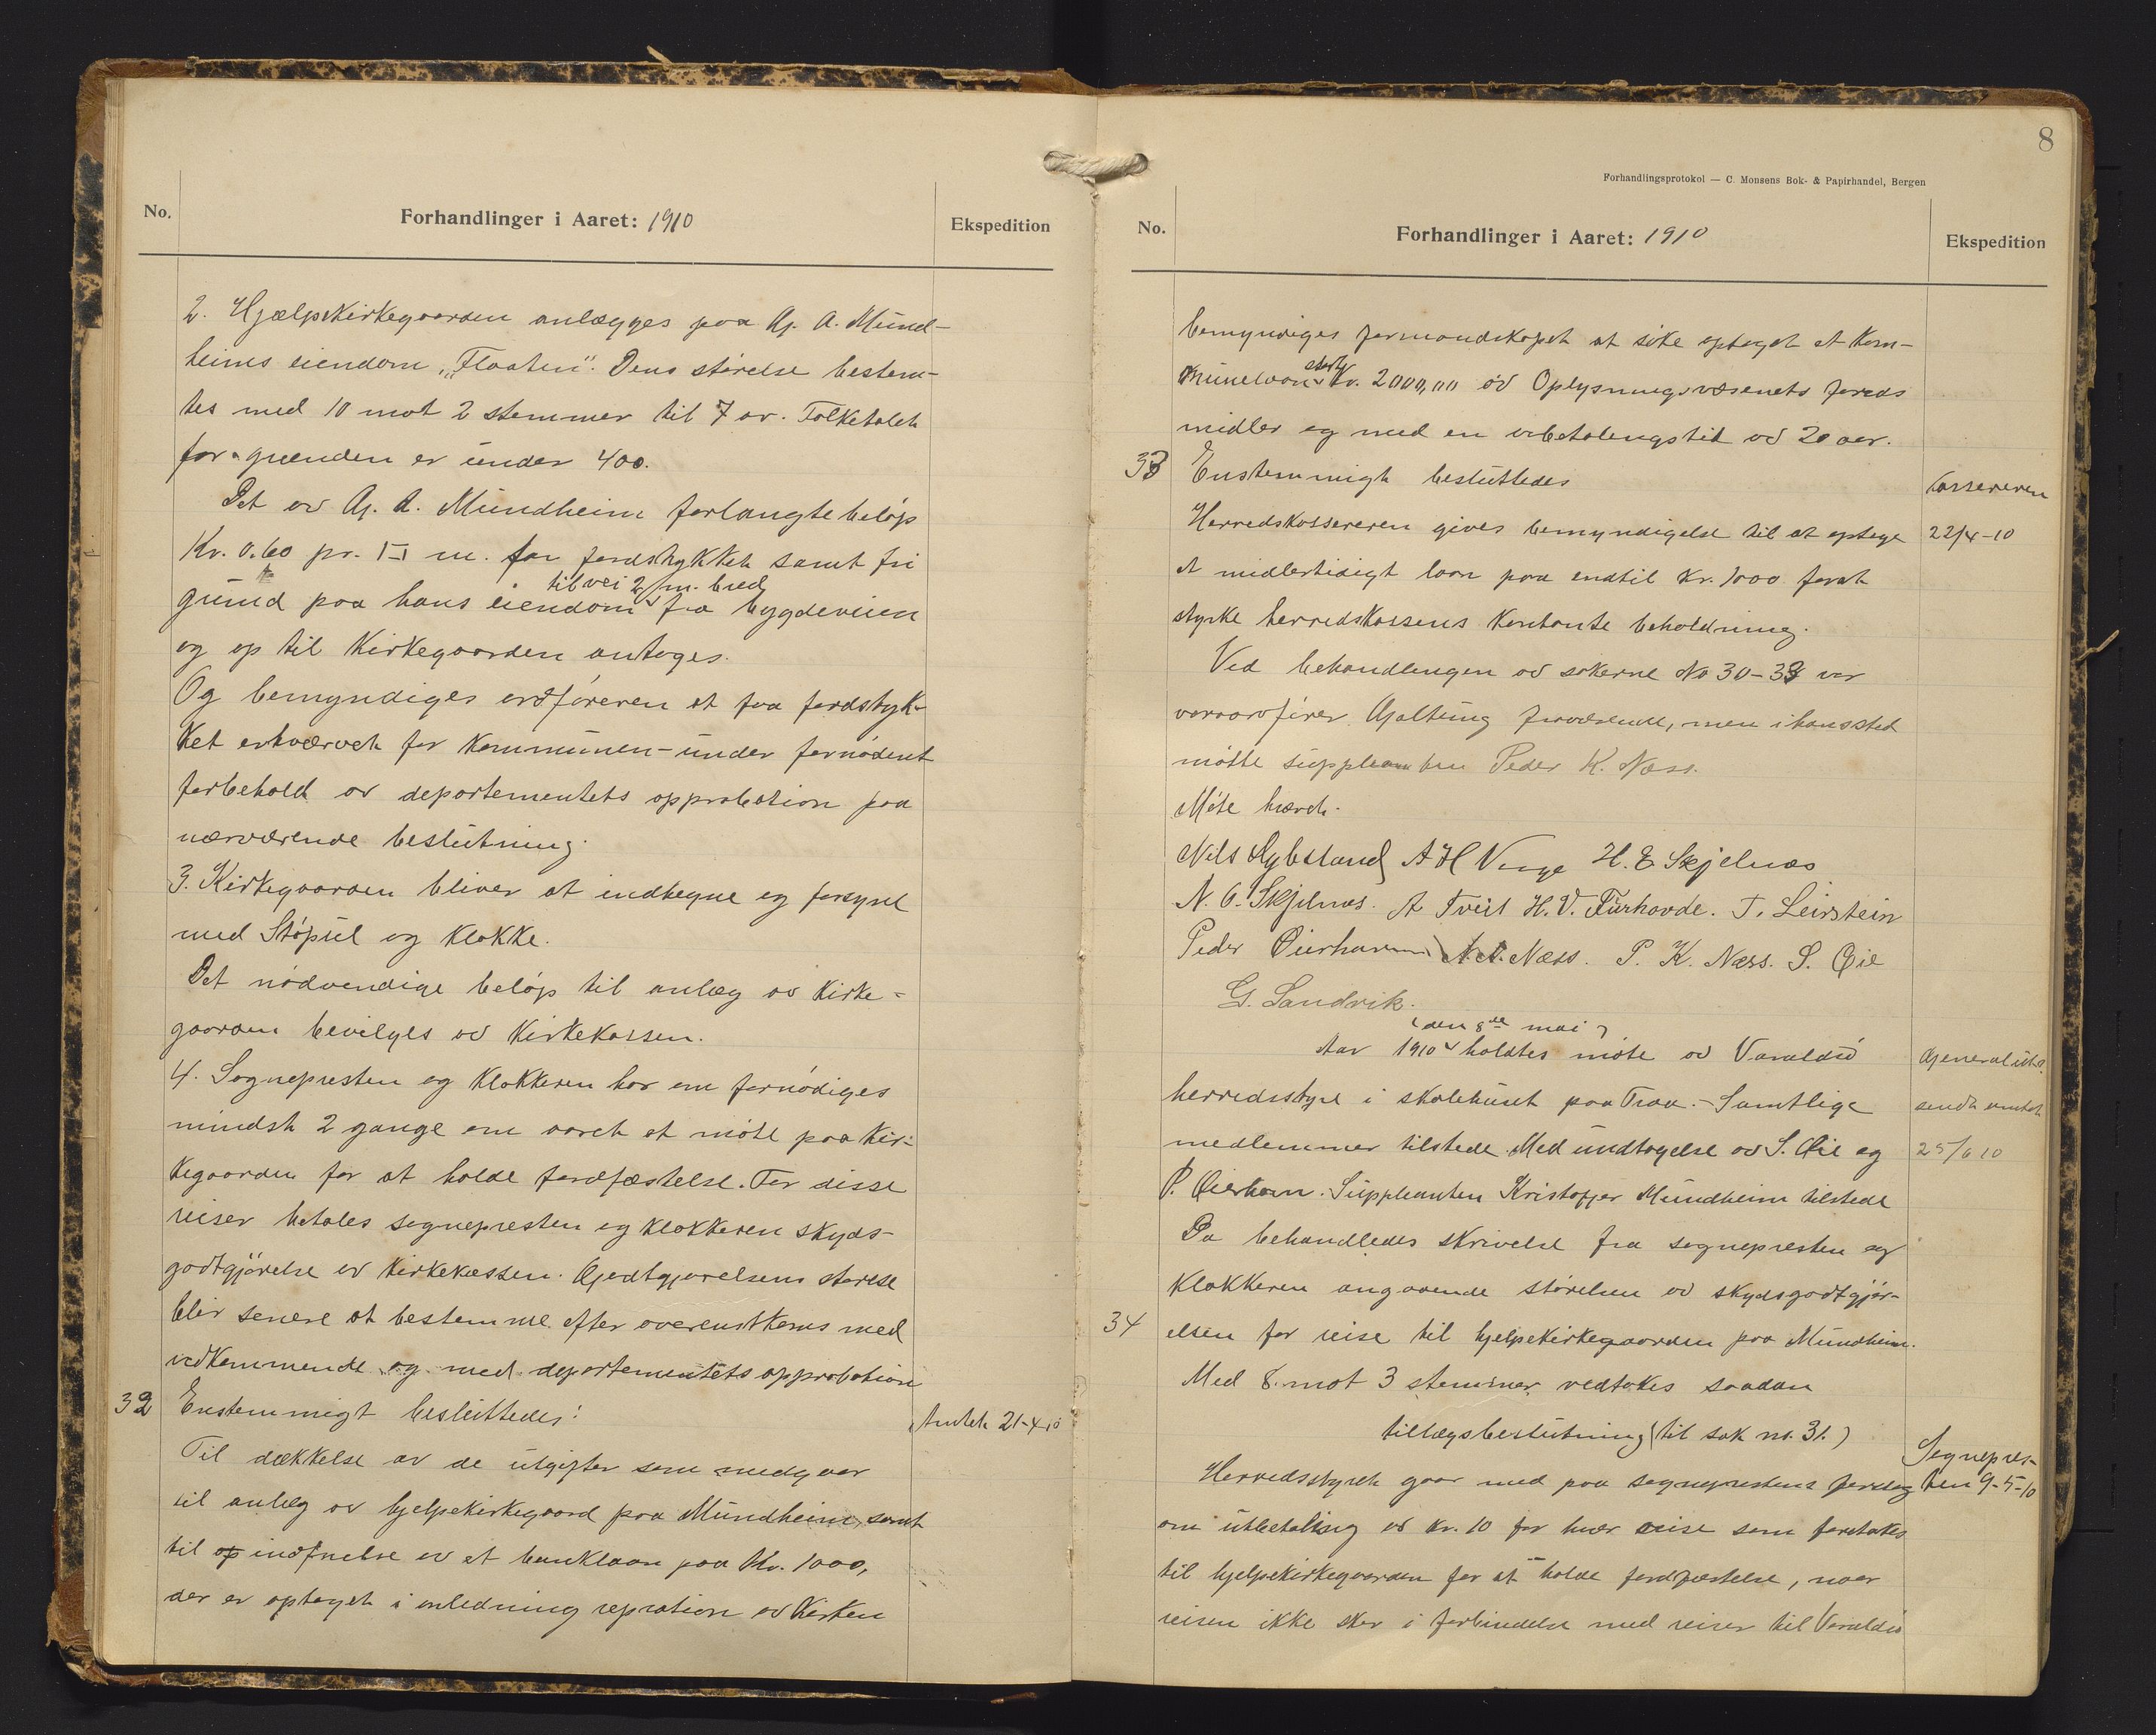 No.
Forhandlinger i Aaret: 1910
Ekspedition
2. Hjælpekirkegaarden anlægges paa Aj. A. Mund-
heims eiendom "Flaaten". Dens störelse bestem-
tes med 10 mot 2 stemmer til 7 ar. Folketalet
for grænden er under 400.
Det av Aj. A. Mundheim forlangte belöp
Kr. 0.60 pr. □ m. for jordstykket samt fri
til vei 2 m. bred
grund paa hans eiendom fra bygdeveien
og op til Kirkegaarden antoges.
Og bemyndiges ordföreren at faa jordstyk-
ket erhvervet for Kommunen - under fornödent
forbehold av departementets approbation paa
nærværende beslutning.
3. Kirkegaarden bliver at indhegne og forsyne
med Støpul og Klokke.
Det nödvendige belöp til anlæg av Kirke-
gaarden bevilges av Kirkekassen.
4. Sognepresten og Klokkeren har om fornödiges
mindst 2 gange om aaret at möte paa Kir-
kegaarden for at holde jordfæstelse. For disse
reiser betales sognepresten og Klokkeren skyds-
godtgjörelse av Kirkekassen. Godtgjörelsens störelse
blir senere at bestemme efter overenskoms med
vedkommende og med departementets approbation
32 Enstemmigt besluttedes:
Amtet 21-4-10
Til dækkelse av de utgifter som medgaar
til anlæg av hjelpekirkegaard paa Mundheim, samt
til op indfrielse av et banklaan paa Kr. 1000,
der er optaget i anledning repration av Kirken
8
Forhandlingsprotokol — C. Monsens Bok- & Papirhandel, Bergen
No.
Forhandlinger i Aaret: 1910
Ekspedition
bemyndiges formandskapet at söke optaget et Kom-
stort
munelaan Kr. 2000,00 av Oplysningsvæsenets fonds
midler og med en avbetalingstid av 20 aar.
33 Enstemmigt besluttedes
Kassereren
Herredskassereren gives bemyndigelse til at optage
22/4-10
et midlertidigt laan paa indtil Kr. 1000 forat
styrke herredskassens Kontante beholdning.
Ved behandlingen av sakerne No 30-33 var
varaordförer Gjaltung fraværende, men i hans sted
mötte suppleanten Peder K. Næss.
Möte hævet.
Nils Lybsland A H Vinge H. E Skjelnæs
N. O. Skjelnæs. A Tveit H. V. Furhovde. T. Leirstein
Peder Öierhavn N. N. Næss. P. K. Næss. S. Øie
G. Sandvik.
(den 8de mai)
Aar 1910 holdtes möte av Varaldsö
Generalutsk.
herredsstyre i skolehuset paa Traa. - Samtlige
sendt amtet
medlemmer tilstede Med undtagelse av S. Øie og
25/6 10
P. Øierhavn. Suppleanten Kristoffer Mundheim tilstede
Da behandledes skrivelse fra sognepresten og
Klokkeren angaaende störelsen av skydsgodtgjör-
34 elsen for reise til hjelpekirkegaarden paa Mundheim.
Med 8 mot 3 stemmer vedtokes saadan
tillægsbeslutning (til sak nr. 31.)
Sognepres-
Herredsstyret gaar med paa sogneprestens forslag
ten 9-5-10
om utbetaling av Kr. 10 for hver reise som foretakes
til hjelpekirkegaarden for at holde jordfæstelse, naar
reisen ikke sker i forbindelse med reiser til Varaldsö